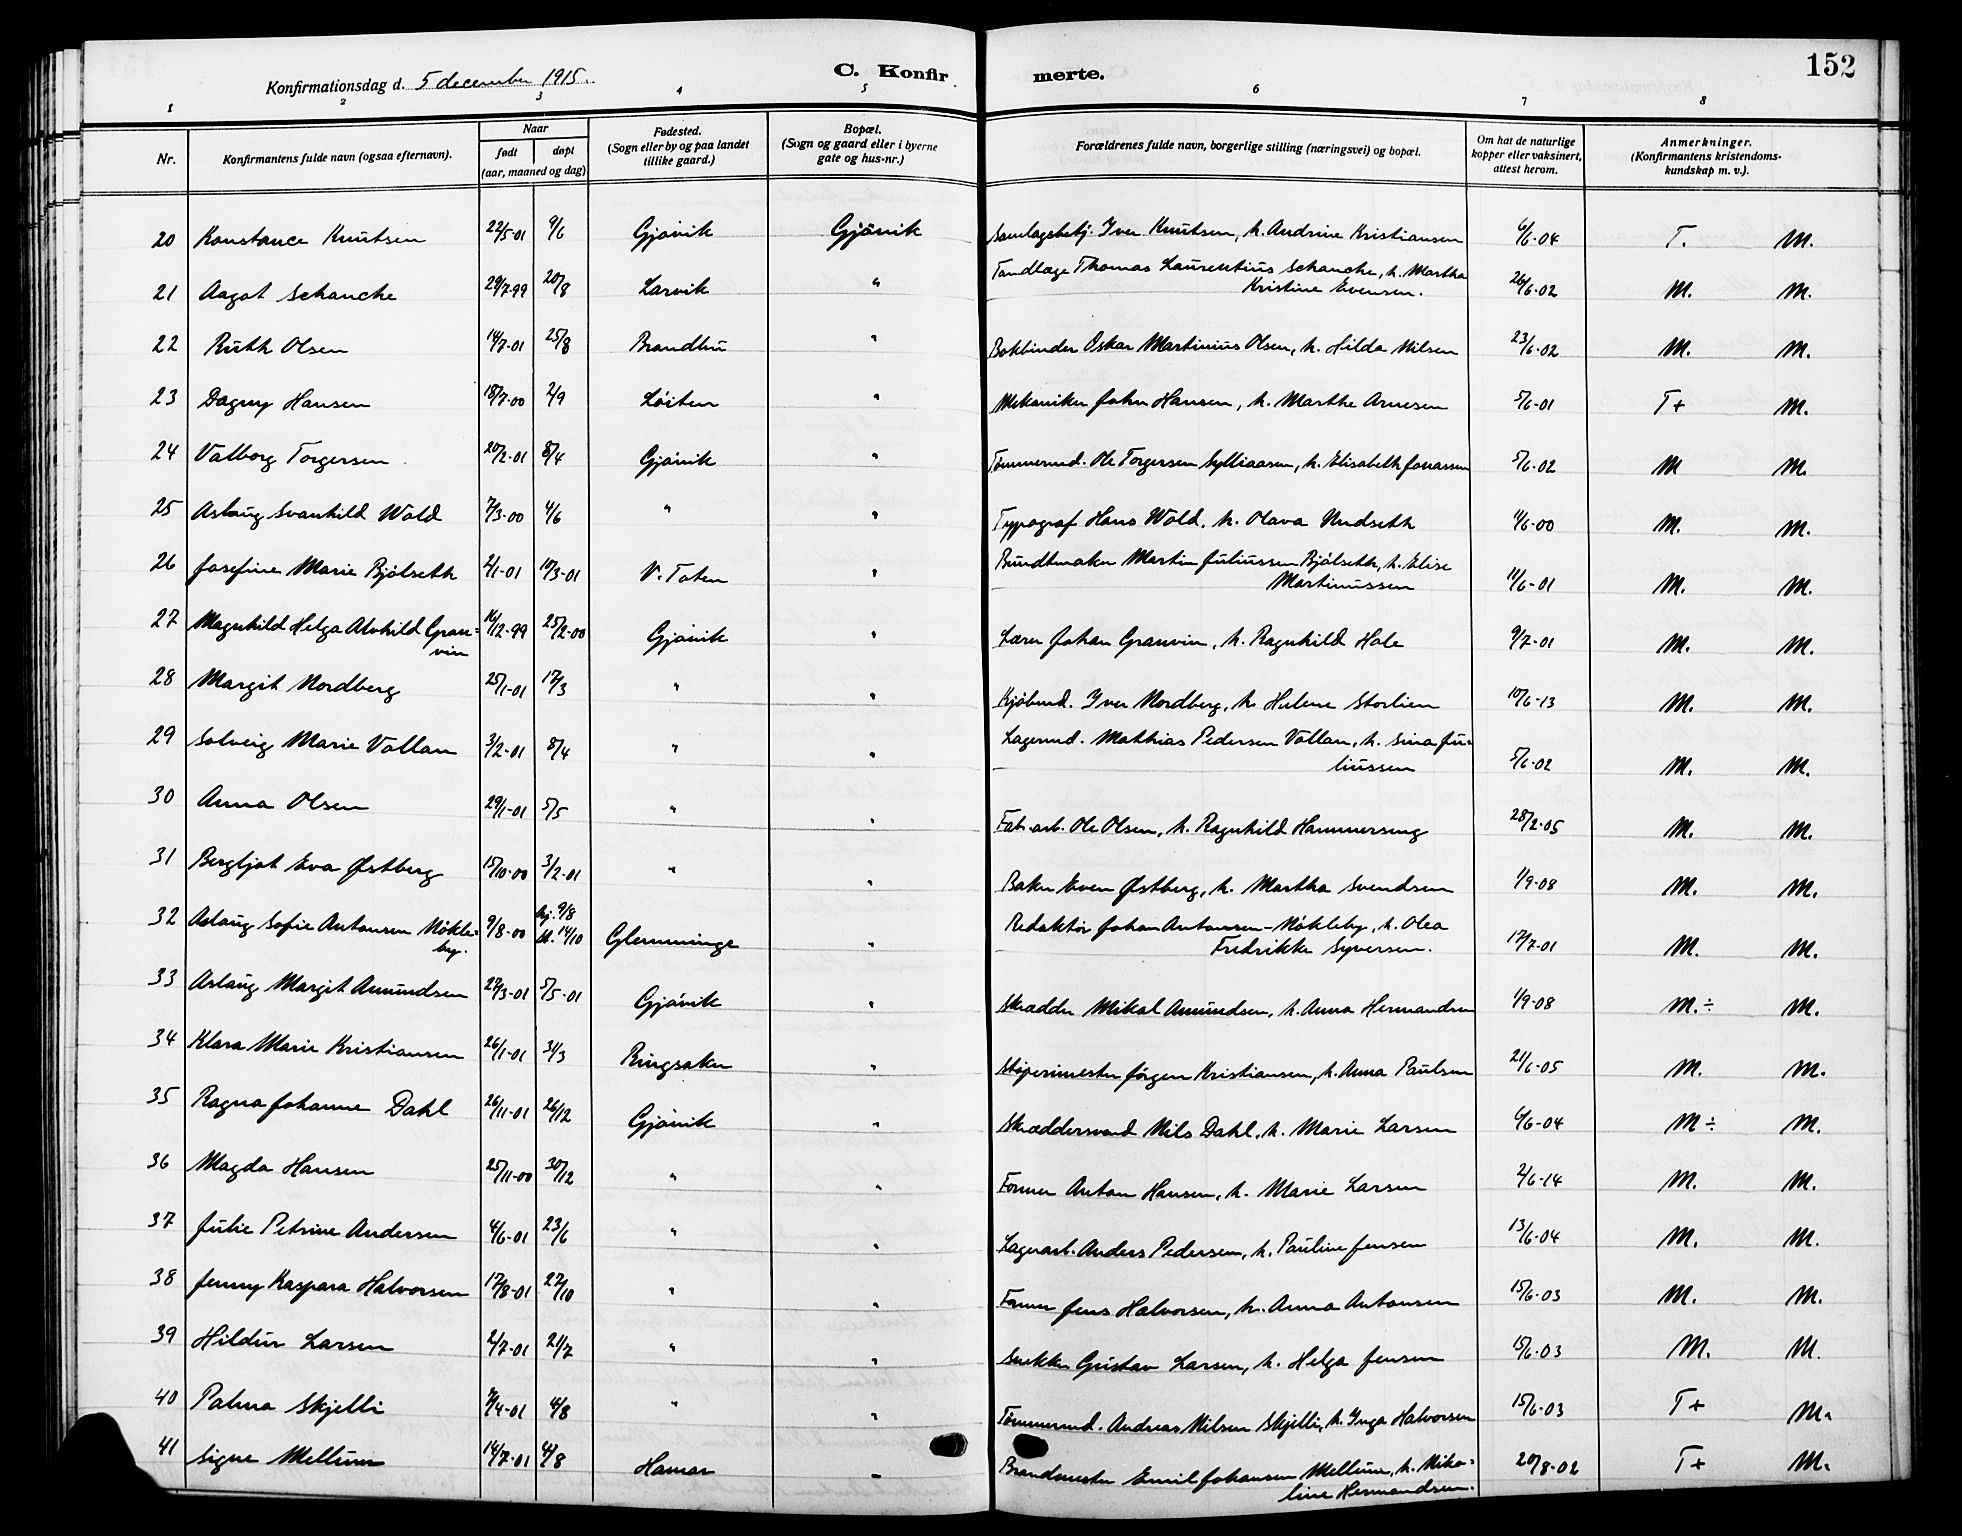 152
Konfirmationsdag d. 5 december 1915.
C. Konfir
merte.
1 2 3 4 5 6 7 8
Nr.
Konfirmantens fulde navn (ogsaa efternavn).
Naar
født døpt
(aar, maaned og dag)
Fødested.
(Sogn eller by og paa landet
tillike gaard.)
Bopæl.
(Sogn og gaard eller i byerne
gate og hus-nr.)
Forældrenes fulde navn, borgerlige stilling (næringsvei) og bopæl.
Om hat de naturlige
kopper eller vaksinert,
attest herom.
Anmerkninger.
(Konfirmantens kristendoms-
kundskap m. v.).
20 Konstance Knutsen 22/5-01 9/6 Gjøvik Gjøvik Samlagsbetj. Iver Knutsen, h. Andrine Kristiansen 6/6-04 T. M.
21 Aagot Schanche 29/7-99 20/8 Larvik " Tandlæge Thomas Laurentius Schanche, h. Martha
Kristine Evensen. 26/6-02 M. M.
22 Ruth Olsen 14/7-01 25/8 Brandbu " Bokbinder Oskar Martinius Olsen, h. Hilda Nilsen 23/6-02 M. M.
23 Dagny Hansen 18/7-00 2/9 Løiten " Mekaniker Johan Hansen, h. Marthe Arnesen 5/6-01 T+ M.
24 Valborg Torgersen 20/2-01 8/4 Gjøvik " Tømmermd. Ole Torgersen Sylliaasen, h. Elisabeth Jonassen 5/6-02 M M.
25 Aslaug Svanhild Wold 7/3-00 4/6 " " Typograf Hans Wold, h. Olava Undseth 11/6-00 M. M.
26 Josefine Marie Bjølseth 2/1-01 10/3-01 V. Toten " Bundtmaker Martin Juliussen Bjølseth, h. Elise
Martinussen 11/6-01 M. M.
27 Magnhild Helga Alvhild Gran-
vin 16/12-99 25/2-00 Gjøvik " Lærer Johan Granvin, h. Ragnhild Hole 9/7-01 M. M.
28 Margit Nordberg 25/1-01 17/3 " " Kjøbmd. Iver Nordberg, h. Helene Storlien 10/6-13 M. M.
29 Solveig Marie Vollan 3/2-01 8/4 " " Lagermd. Mathias Pedersen Vollan, h. Sina Ju-
liussen 5/6-02 M. M.
30 Anna Olsen 29/1-01 5/5 " " Fab. arb. Ole Olsen, h. Ragnhild Hammerseng 28/2-05 M. M.
31 Bergljot Eva Østberg 15/10-00 3/2-01 " " Baker Even Østberg, h. Martha Svendsen 1/9-08 M. M.
32 Aslaug Sofie Antonsen Møkle-
by. 9/8-00 hj. 9/8
14/10 Glemminge " Redaktør Johan Antonsen-Møkleby, h. Olea
Fredrikke Syversen. 17/7-01 M. M.
33 Aslaug Margit Amundsen 27/3-01 5/5-01 Gjøvik " Skrædder Mikal Amundsen, h. Anna Hermandsen 1/9-08 M.÷ M.
34 Klara Marie Kristiansen 26/1-01 31/3 Ringsaker " Støperimester Jørgen Kristiansen, h. Anna Paulsen 21/6-05 M. M.
35 Ragna Johanne Dahl 26/11-01 26/12 Gjøvik " Skræddersvend Nils Dahl, h. Marie Larsen 6/6-04 M÷ M.
36 Magda Hansen 25/11-00 30/12 " " Former Anton Hansen, h. Marie Larsen 2/6-14 M. M.
37 Julie Petrine Andersen 4/6-01 23/6 " " Lagerarb. Anders Pedersen, h. Pauline Jensen 13/6-04 M. M.
38 Jenny Kaspara Halvorsen 17/8-01 27/10 " " Former Jens Halvorsen, h. Anna Antonsen 15/6-03 M. M.
39 Hildur Larsen 2/7-01 21/7 " " Snekker Gustav Larsen, h. Helga Jensen 15/6-03 M. M.
40 Palma Skjelli 7/4-01 4/8 " " Tømmermd. Andreas Nilsen Skjelli, h. Inga Halvorsen 15/6-03 T+ M.
41 Signe Mellum 14/7-01 4/8 Hamar " Brandmester Emil Johansen Mellum, h. Niko-
line Hermandsen. 20/8-02 T+ M.